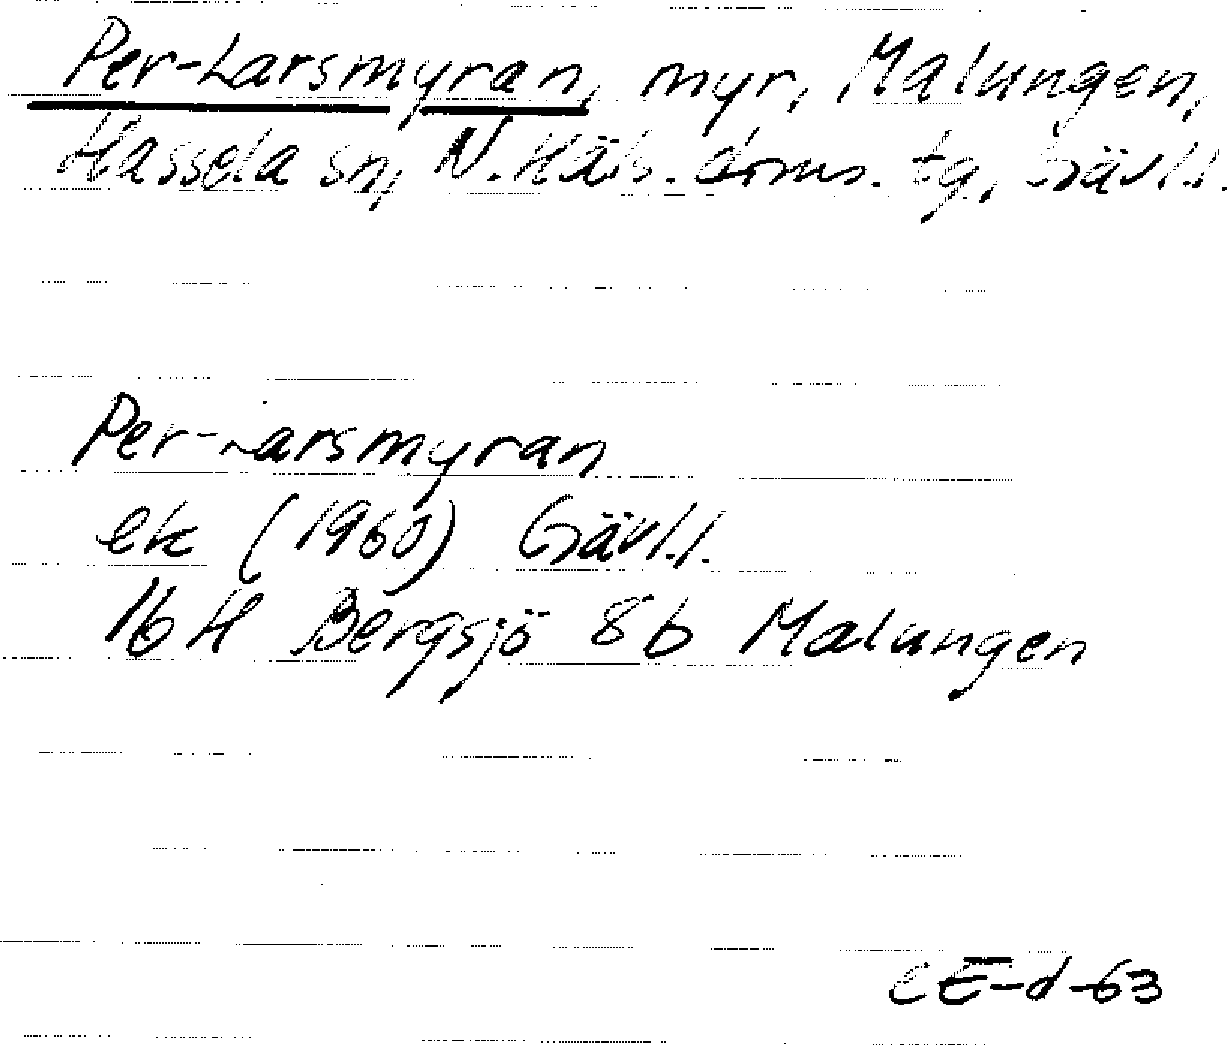 Per-Larsmyran, myr, Malungen,
Hassela sn, N. Häls. doms. tg, Gävl.l.
Per-Larsmyran
ek (1960) Gävl.l.
16H Bergsjö 8b Malungen
CE-d-63